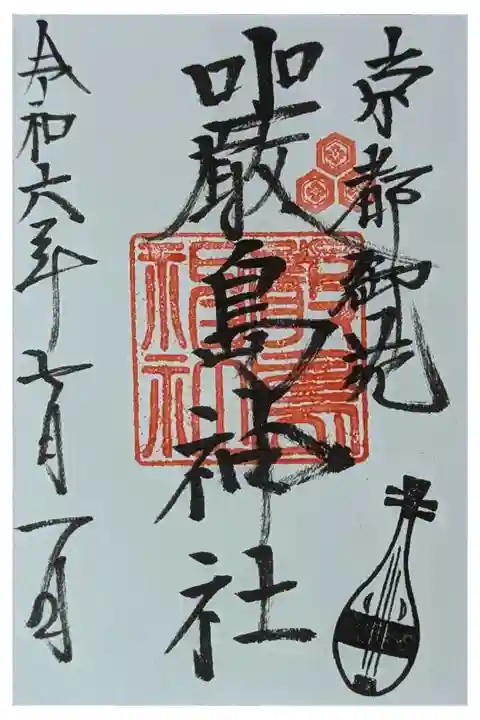 京都御苑
嚴島神社
令和六年七月一日
嚴島神社